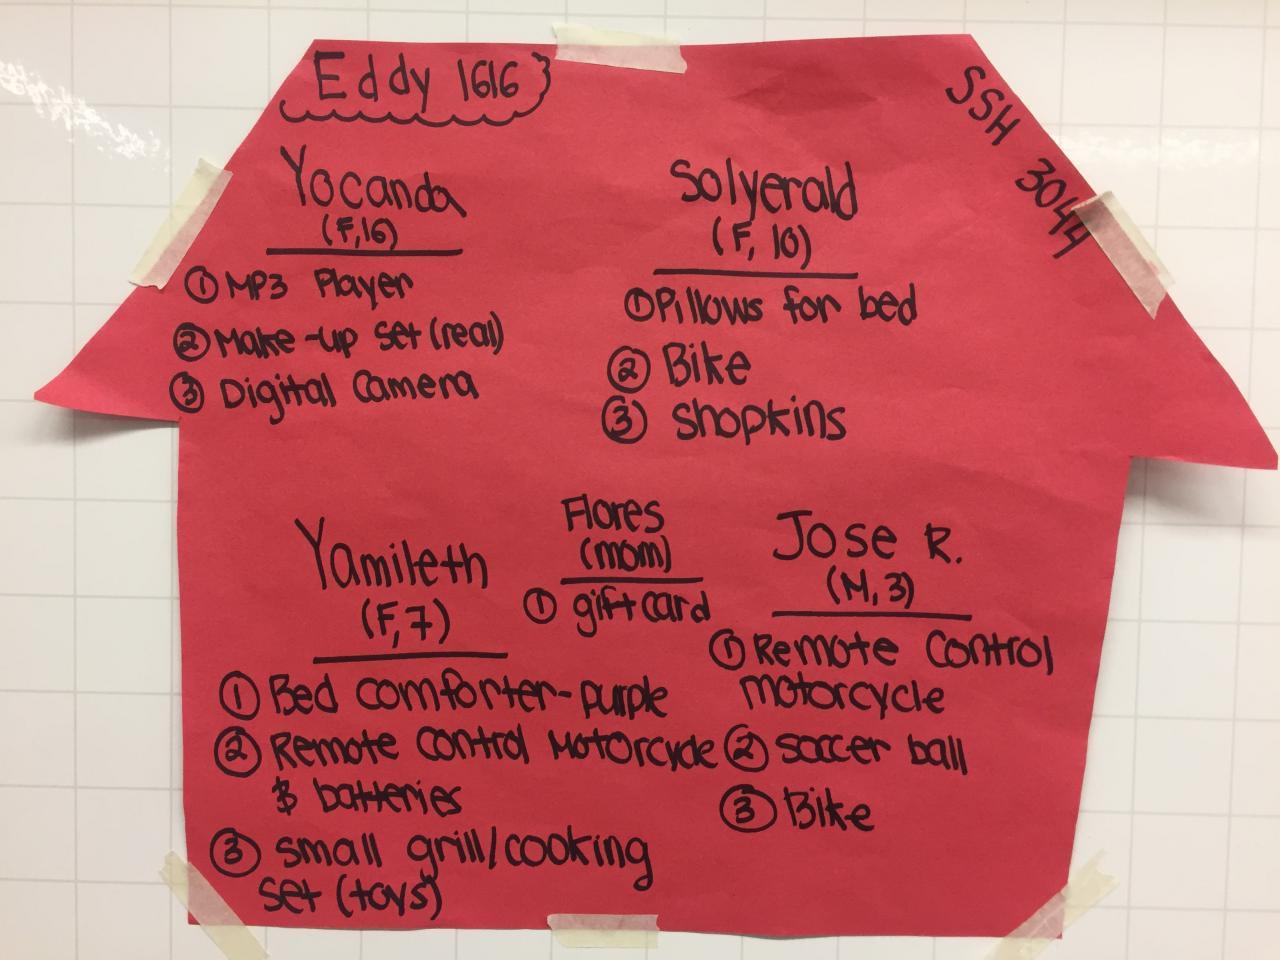 Eddy 1616
SSH 3044
Yocanda
(F,16)
① MP3 Player
② Make-up set (real)
③ Digital Camera
Solyerald
(F, 10)
① Pillows for bed
② Bike
③ Shopkins
Yamileth
(F,7)
① Bed comforter-purple
② Remote control motorcycle
& batteries
③ small grill/cooking
set (toys)
Flores
(mom)
① giftcard
Jose R.
(M,3)
① Remote Control
motorcycle
② soccer ball
③ Bike